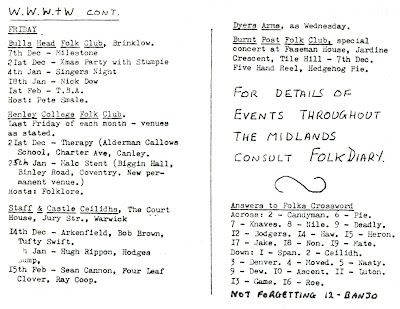 W.W.W+W CONT.
FRIDAY
Bulls Head Folk Club, Brinklow.
7th Dec - Milestone
21st Dec - Xmas Party with Stumpie
4th Jan - Singers Night
18th Jan - Nick Dow
1st Feb - T.B.A.
Host: Pete Smale.
Henley College Folk Club.
Last Friday of each month - venues
as stated.
21st Dec - Therapy (Alderman Callows
School, Charter Ave, Canley.
25th Jan - Malc Stent (Biggin Hall,
Binley Road, Coventry. New per-
manent venue.)
Hosts: Folklore.
Staff & Castle Ceilidhs, The Court
House, Jury Str., Warwick
14th Dec - Arkenfield, Bob Brown,
Tufty Swift.
h Jan - Hugh Rippon, Hodges
ump.
15th Feb - Sean Cannon, Four Leaf
Clover, Ray Coop.
Dyers Arms, as Wednesday.
Burnt Post Folk Club, special
concert at Faseman House, Jardine
Crescent, Tile Hill - 7th Dec.
Five Hand Reel, Hedgehog Pie.
FOR DETAILS OF
EVENTS THROUGHOUT
THE MIDLANDS
CONSULT FOLKDIARY.
Answers to Folks Crossword
Across: 2 - Candyman. 6 - Pie.
7 - Knaves. 8 - Nile. 9 - Deadly.
12 - Bodgers. 14 - Haw. 15 - Heron.
17 - Jake. 18 - Non. 19 - Mate.
Down: 1 - Span. 2 - Ceilidh.
3 - Denver. 4 - Moved. 5 - Nasty.
9 - Dew. 10 - Ascent. 11 - Luton.
13 - Game. 16 - Roe.
NOT FORGETTING 12 - BANJO